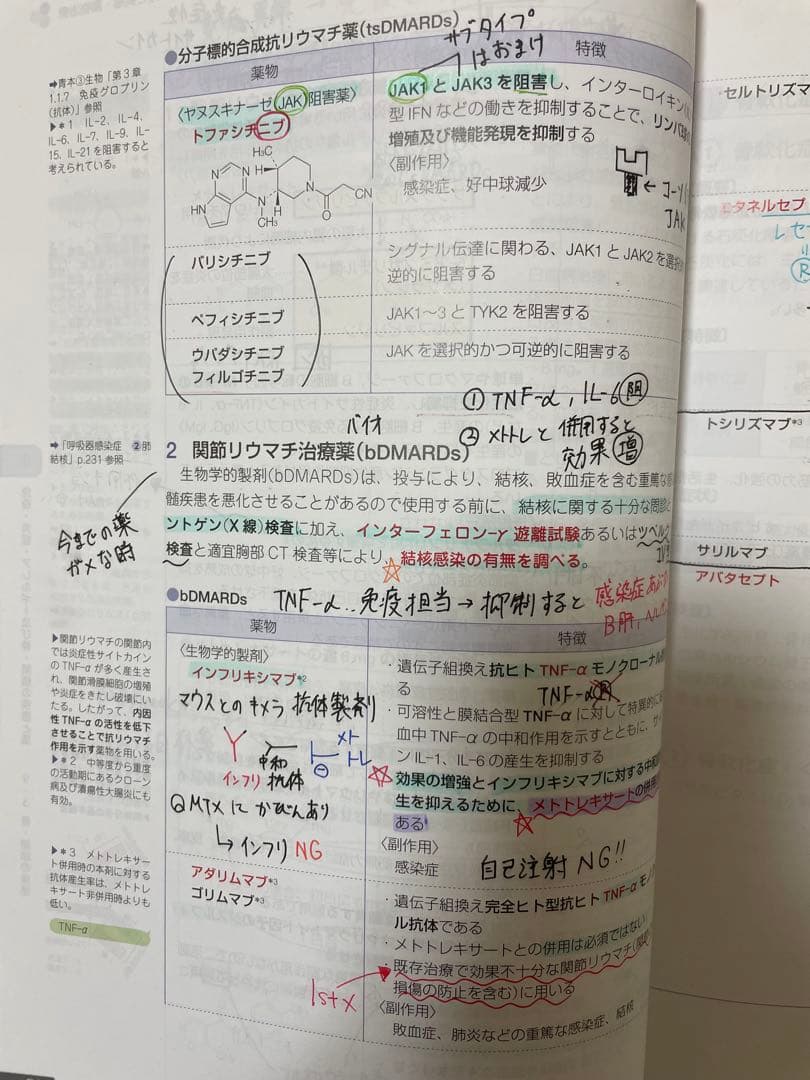 ●分子標的合成抗リウマチ薬(tsDMARDs)
サブタイプ
はおまけ
薬物
特徴
〈ヤヌスキナーゼ(JAK)阻害薬〉
トファシチニブ
H₃C
H
N
N
N
HN
N
H
CH₃
O
CN
JAK1とJAK3を阻害し、インターロイキン
型IFNなどの働きを抑制することで、リンパ球
増殖及び機能発現を抑制する
〈副作用〉
感染症、好中球減少
JAK
バリシチニブ
シグナル伝達に関わる、JAK1とJAK2を選択
逆的に阻害する
ペフィシチニブ
JAK1〜3とTYK2を阻害する
ウパダシチニブ
フィルゴチニブ
JAKを選択的かつ可逆的に阻害する
➡青本③生物「第3章
1.1.7 免疫グロブリン
(抗体)」参照
▶*1 IL-2、IL-4、
IL-6、IL-7、IL-9、IL-
15、IL-21を阻害すると
考えられている。
① TNF-α, IL-6 阻
② メトトレと併用すると
効果 増
バイオ
2 関節リウマチ治療薬(bDMARDs)
➡「呼吸器感染症 ②肺
結核」p.231参照
生物学的製剤(bDMARDs)は、投与により、結核、敗血症を含む重篤な
髄疾患を悪化させることがあるので使用する前に、結核に関する十分な問診
ントゲン(X線)検査に加え、インターフェロン-γ 遊離試験あるいはツベルク
検査と適宜胸部CT検査等により、結核感染の有無を調べる。
今までの薬
ダメな時
●bDMARDs
TNF-α‥免疫担当→抑制すると
感染症
B肝,
薬物
特徴
〈生物学的製剤〉
インフリキシマブ*²
マウスとのキメラ 抗体製剤
インフリ
中和
抗体
メト
トレ
②MTXに かびんあり
↳インフリ NG
・遺伝子組換え抗ヒトTNF-αモノクローナル
る
TNF-α
・可溶性と膜結合型TNF-αに対して特異的に
血中TNF-αの中和作用を示すとともに、サ
ンIL-1、IL-6の産生を抑制する
☆効果の増強とインフリキシマブに対する中和
生を抑えるために、メトトレキサートの併用
ある
〈副作用〉
感染症
自己注射 NG!!
▶関節リウマチの関節内
では炎症性サイトカイン
のTNF-αが多く産生さ
れ、関節滑膜細胞の増殖
や炎症をきたし破壊にい
たる。したがって、内因
性TNF-αの活性を低下
させることで抗リウマチ
作用を示す薬物を用いる。
▶*2 中等度から重度
の活動期にあるクローン
病及び潰瘍性大腸炎にも
有効。
▶*3 メトトレキサー
ト併用時の本剤に対する
抗体産生率は、メトトレ
キサート非併用時よりも
低い。
TNF-α
アダリムマブ*³
ゴリムマブ*³
・遺伝子組換え完全ヒト型抗ヒトTNF-αモノ
ル抗体である
・メトトレキサートとの併用は必須ではない
・既存治療で効果不十分な関節リウマチ(関節
損傷の防止を含む)に用いる
〈副作用〉
敗血症、肺炎などの重篤な感染症、結核
1st×
セルトリズマ
エタネルセプ
レセ
トシリズマブ*³
サリルマブ
アバタセプト